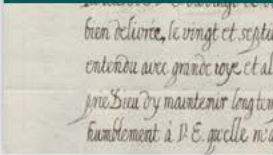 bien delivrée, le vingt et septi
entendu avec grande joye et al
prie Dieu d'y maintenir longtem
humblement à V. E. qu'elle m'a